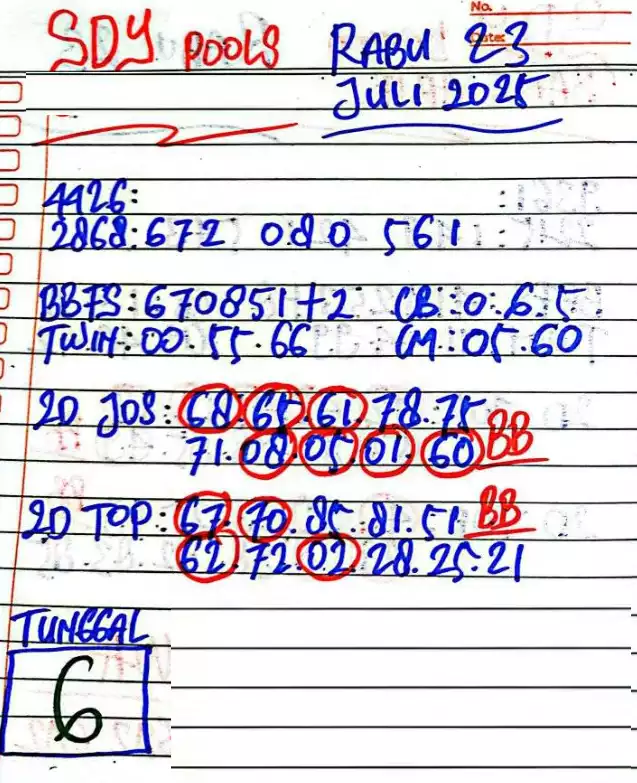 No.
SDY POOLS RABU 23
Date:
JULI 2025
4426:
2868:672 080 561
BBFS:670851+2 CB:0.6.5
TWIN:00.55.66 CM:05.60
2D JOS:68.65.61.78.75
71.08.05.01.60 BB
2D TOP:67.70.85.81.51 BB
62.72.02.28.25.21
TUNGGAL
6